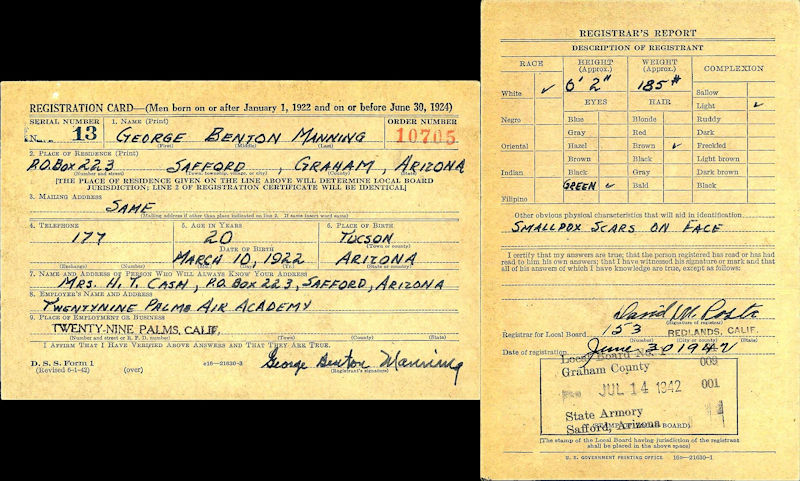 REGISTRATION CARD—(Men born on or after January 1, 1922 and on or before June 30, 1924)
SERIAL NUMBER 1. NAME (Print) ORDER NUMBER
13 GEORGE BENTON MANNING 10705
(First) (Middle) (Last)
2. PLACE OF RESIDENCE (Print)
P.O. BOX 223 SAFFORD, GRAHAM, ARIZONA
(Number and street) (Town, township, village, or city) (County) (State)
[THE PLACE OF RESIDENCE GIVEN ON THE LINE ABOVE WILL DETERMINE LOCAL BOARD
JURISDICTION; LINE 2 OF REGISTRATION CERTIFICATE WILL BE IDENTICAL]
3. MAILING ADDRESS
SAME
[Mailing address if other than place indicated on line 2. If same insert word same]
4. TELEPHONE 5. AGE IN YEARS 6. PLACE OF BIRTH
177 20 TUCSON
DATE OF BIRTH (Town or county)
MARCH 10, 1922 ARIZONA
(Exchange) (Number) (Mo.) (Day) (Yr.) (State or country)
7. NAME AND ADDRESS OF PERSON WHO WILL ALWAYS KNOW YOUR ADDRESS
MRS. H. T. CASH, P.O. BOX 223, SAFFORD, ARIZONA
8. EMPLOYER'S NAME AND ADDRESS
TWENTYNINE PALMS AIR ACADEMY
9. PLACE OF EMPLOYMENT OR BUSINESS
TWENTY-NINE PALMS, CALIF.
(Number and street or R. F. D. number) (Town) (County) (State)
I AFFIRM THAT I HAVE VERIFIED ABOVE ANSWERS AND THAT THEY ARE TRUE.
D. S. S. Form 1
(Revised 6-1-42) (over) 16—21630-3 George Benton Manning
(Registrant's signature)
REGISTRAR'S REPORT
DESCRIPTION OF REGISTRANT
RACE HEIGHT (Approx.) WEIGHT (Approx.) COMPLEXION
White ✓ 6' 2" 185# Sallow
EYES HAIR Light ✓
Negro Blue Blonde Ruddy
Gray Red Dark
Oriental Hazel Brown ✓ Freckled
Brown Black Light brown
Indian GREEN ✓ Gray Dark brown
Bald Black
Filipino
Other obvious physical characteristics that will aid in identification
SMALLPOX SCARS ON FACE
I certify that my answers are true; that the person registered has read or has had
read to him his own answers; that I have witnessed his signature or mark and that
all of his answers of which I have knowledge are true, except as follows:
David M.
(Signature of registrar)
Registrar for Local Board 153 REDLANDS, CALIF.
(Number) (City or county) (State)
Date of registration June 30 1942
Local Board No. 1 009
Graham County
JUL 14 1942 001
State Armory
Safford, Arizona
(STAMP OF LOCAL BOARD)
[The stamp of the Local Board having jurisdiction of the registrant
shall be placed in the above space]
U. S. GOVERNMENT PRINTING OFFICE 16—21630-1